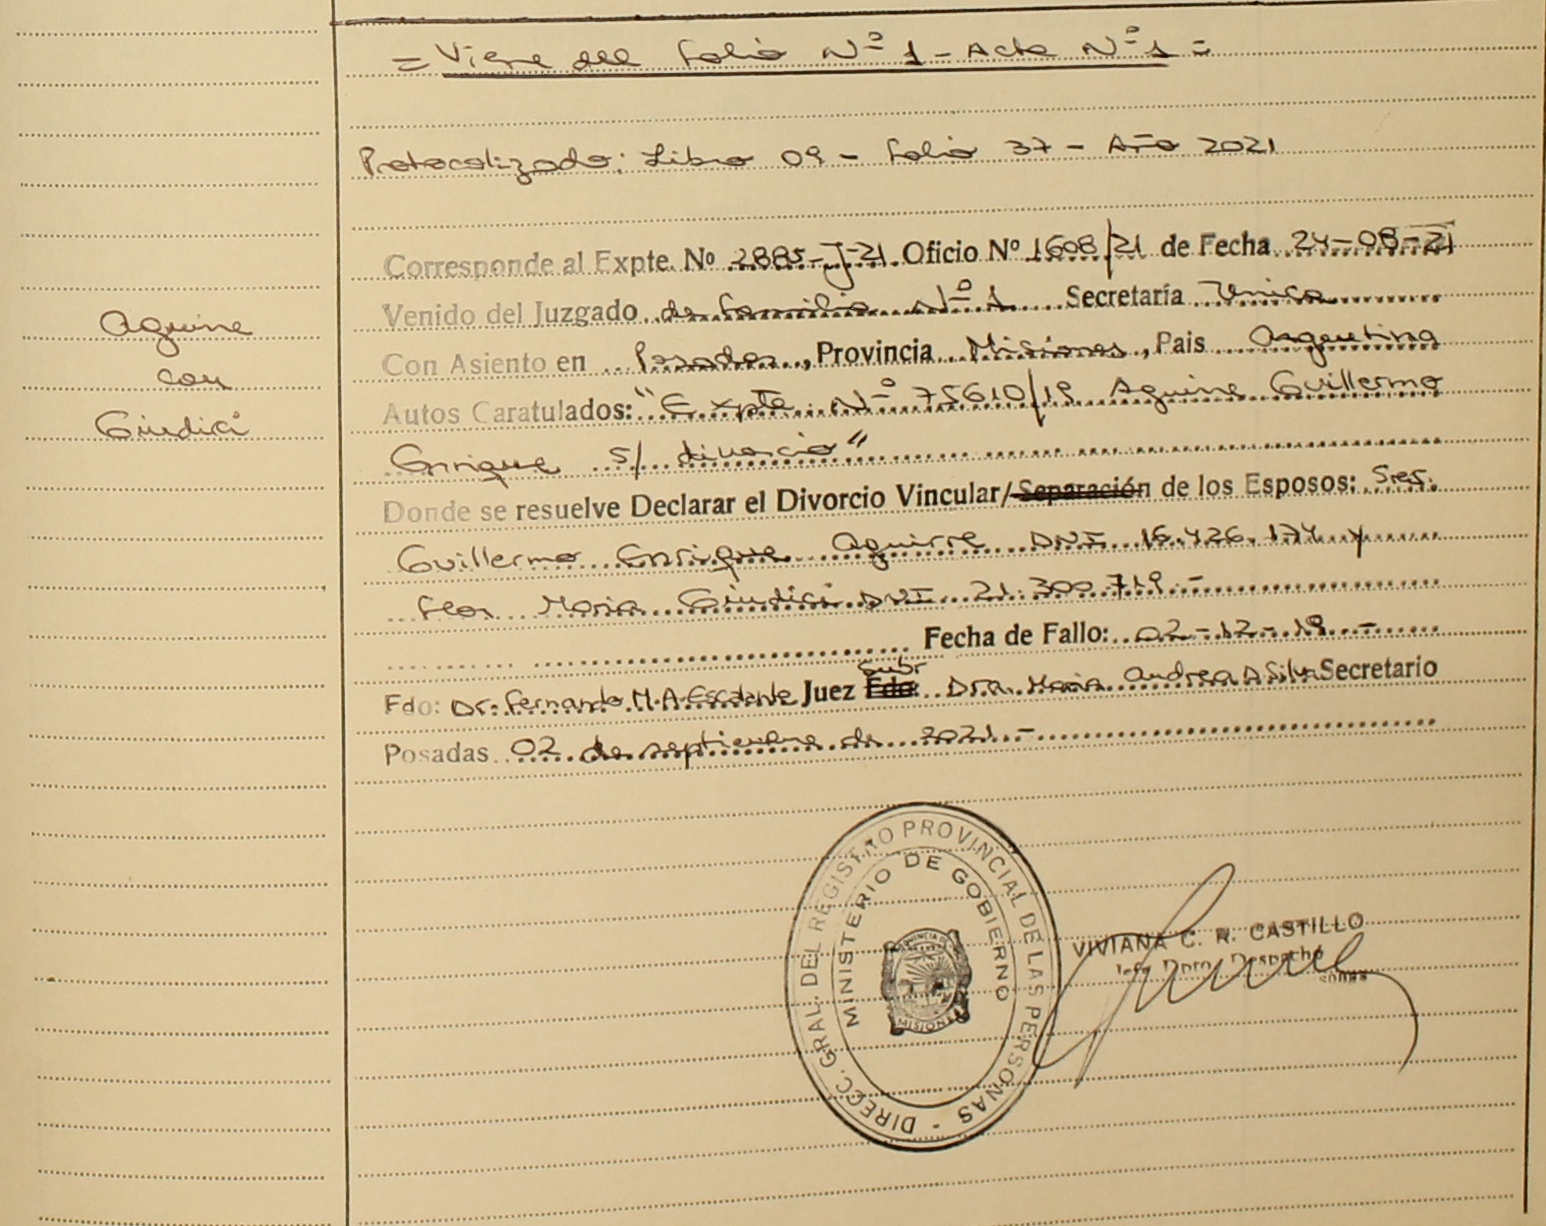 = Viene del folio Nº 1 - Acta Nº 1 =
Protocolizado: Libro 09 - folio 37 - Año 2021
Corresponde al Expte. Nº 2885-J-21 Oficio Nº 1608/21 de Fecha 24-08-21
Venido del Juzgado de familia Nº 1 Secretaría Unica
Con Asiento en Posadas, Provincia Misiones, Pais Argentina
Autos Caratulados: "Expte. Nº 75610/19 Aguirre Guillermo
Enrique s/ divorcio"
Donde se resuelve Declarar el Divorcio Vincular/Separación de los Esposos: Sres.
Guillermo Enrique Aguirre DNI 16.426.174 y
Flor Maria Giudici DNI 21.300.719.-
Fecha de Fallo: 02-12-19.-
Subr
Fdo: Dr. Fernando M.A. Escalante Juez Fdo: Dra. Maria Andrea D Silva Secretario
Posadas 02 de septiembre de 2021.-
Aguirre
con
Giudici
DIRECC. GRAL. DEL REGISTRO PROVINCIAL DE LAS PERSONAS -
MINISTERIO DE GOBIERNO
PROVINCIA DE
MISIONES
VIVIANA C. R. CASTILLO
Jefe Dpto. Despacho